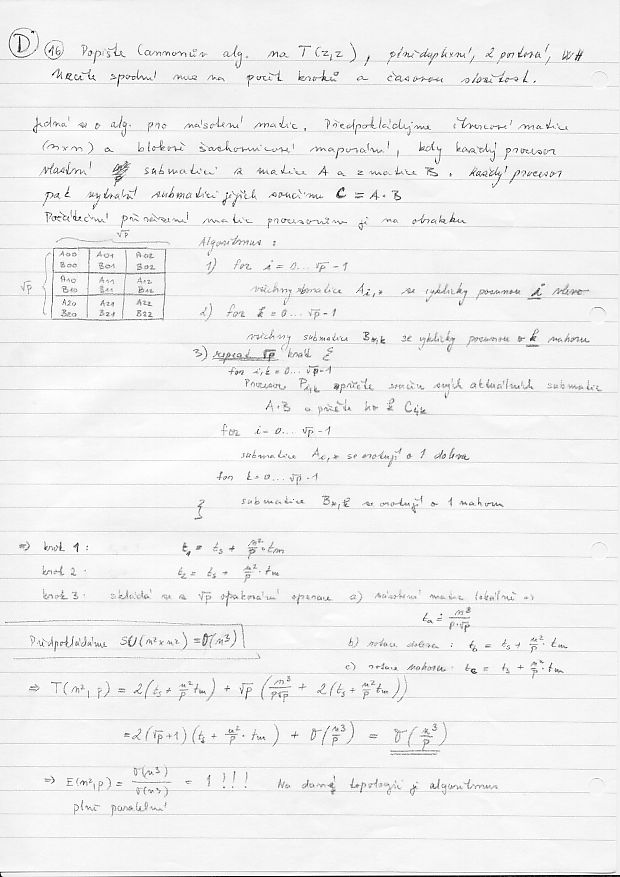 D 16 Popište Cannonův alg. na T(z,z), plně duplexní, 2 portová, WH
Určete spodní mez na počet kroků a časovou složitost.
Jedná se o alg. pro násobení matic. Předpokládejme čtvercové matice
(n×n) a blokově šachovnicové mapování, kdy každý procesor
vlastní submatici z matice A a z matice B. Každý procesor
pak vytváří submatici jejich součinu C = A·B
Počáteční přiřazení matic procesorům je na obrázku
√p
√p
A00 A01 A02
B00 B01 B02
A10 A11 A12
B10 B11 B12
A20 A21 A22
B20 B21 B22
Algoritmus:
1) for i = 0... √p -1
všechny submatice Ai,* se cyklicky posunou i vlevo
2) for k = 0... √p -1
všechny submatice B*,k se cyklicky posunou o k nahoru
3) repeat √p krát {
for i,k = 0... √p-1
Procesor Pi,k spočte součin svých aktuálních submatic
A·B a přičte ho k Ci,k
for i = 0... √p -1
submatice Ai,* se orotují o 1 doleva
for k = 0... √p -1
submatice B*,k se orotují o 1 nahoru
}
⇒ krok 1: t1 = ts + n²/p · tm
krok 2: t2 = ts + n²/p · tm
krok 3: skládá se z √p opakování operace a) násobení matic lokálně
ta = n³/(p·√p)
Předpokládáme SU(n²×n²) = O(n³)
b) rotace doleva: tb = ts + n²/p · tm
c) rotace nahoru: tc = ts + n²/p · tm
⇒ T(n², p) = 2(ts + n²/p tm) + √p (n³/(p√p) + 2(ts + n²/p tm))
= 2(√p+1)(ts + n²/p · tm) + O(n³/p) = O(n³/p)
⇒ E(n²,p) = O(n³)/O(n³) = 1 !!! Na dané topologii je algoritmus
plně paralelní